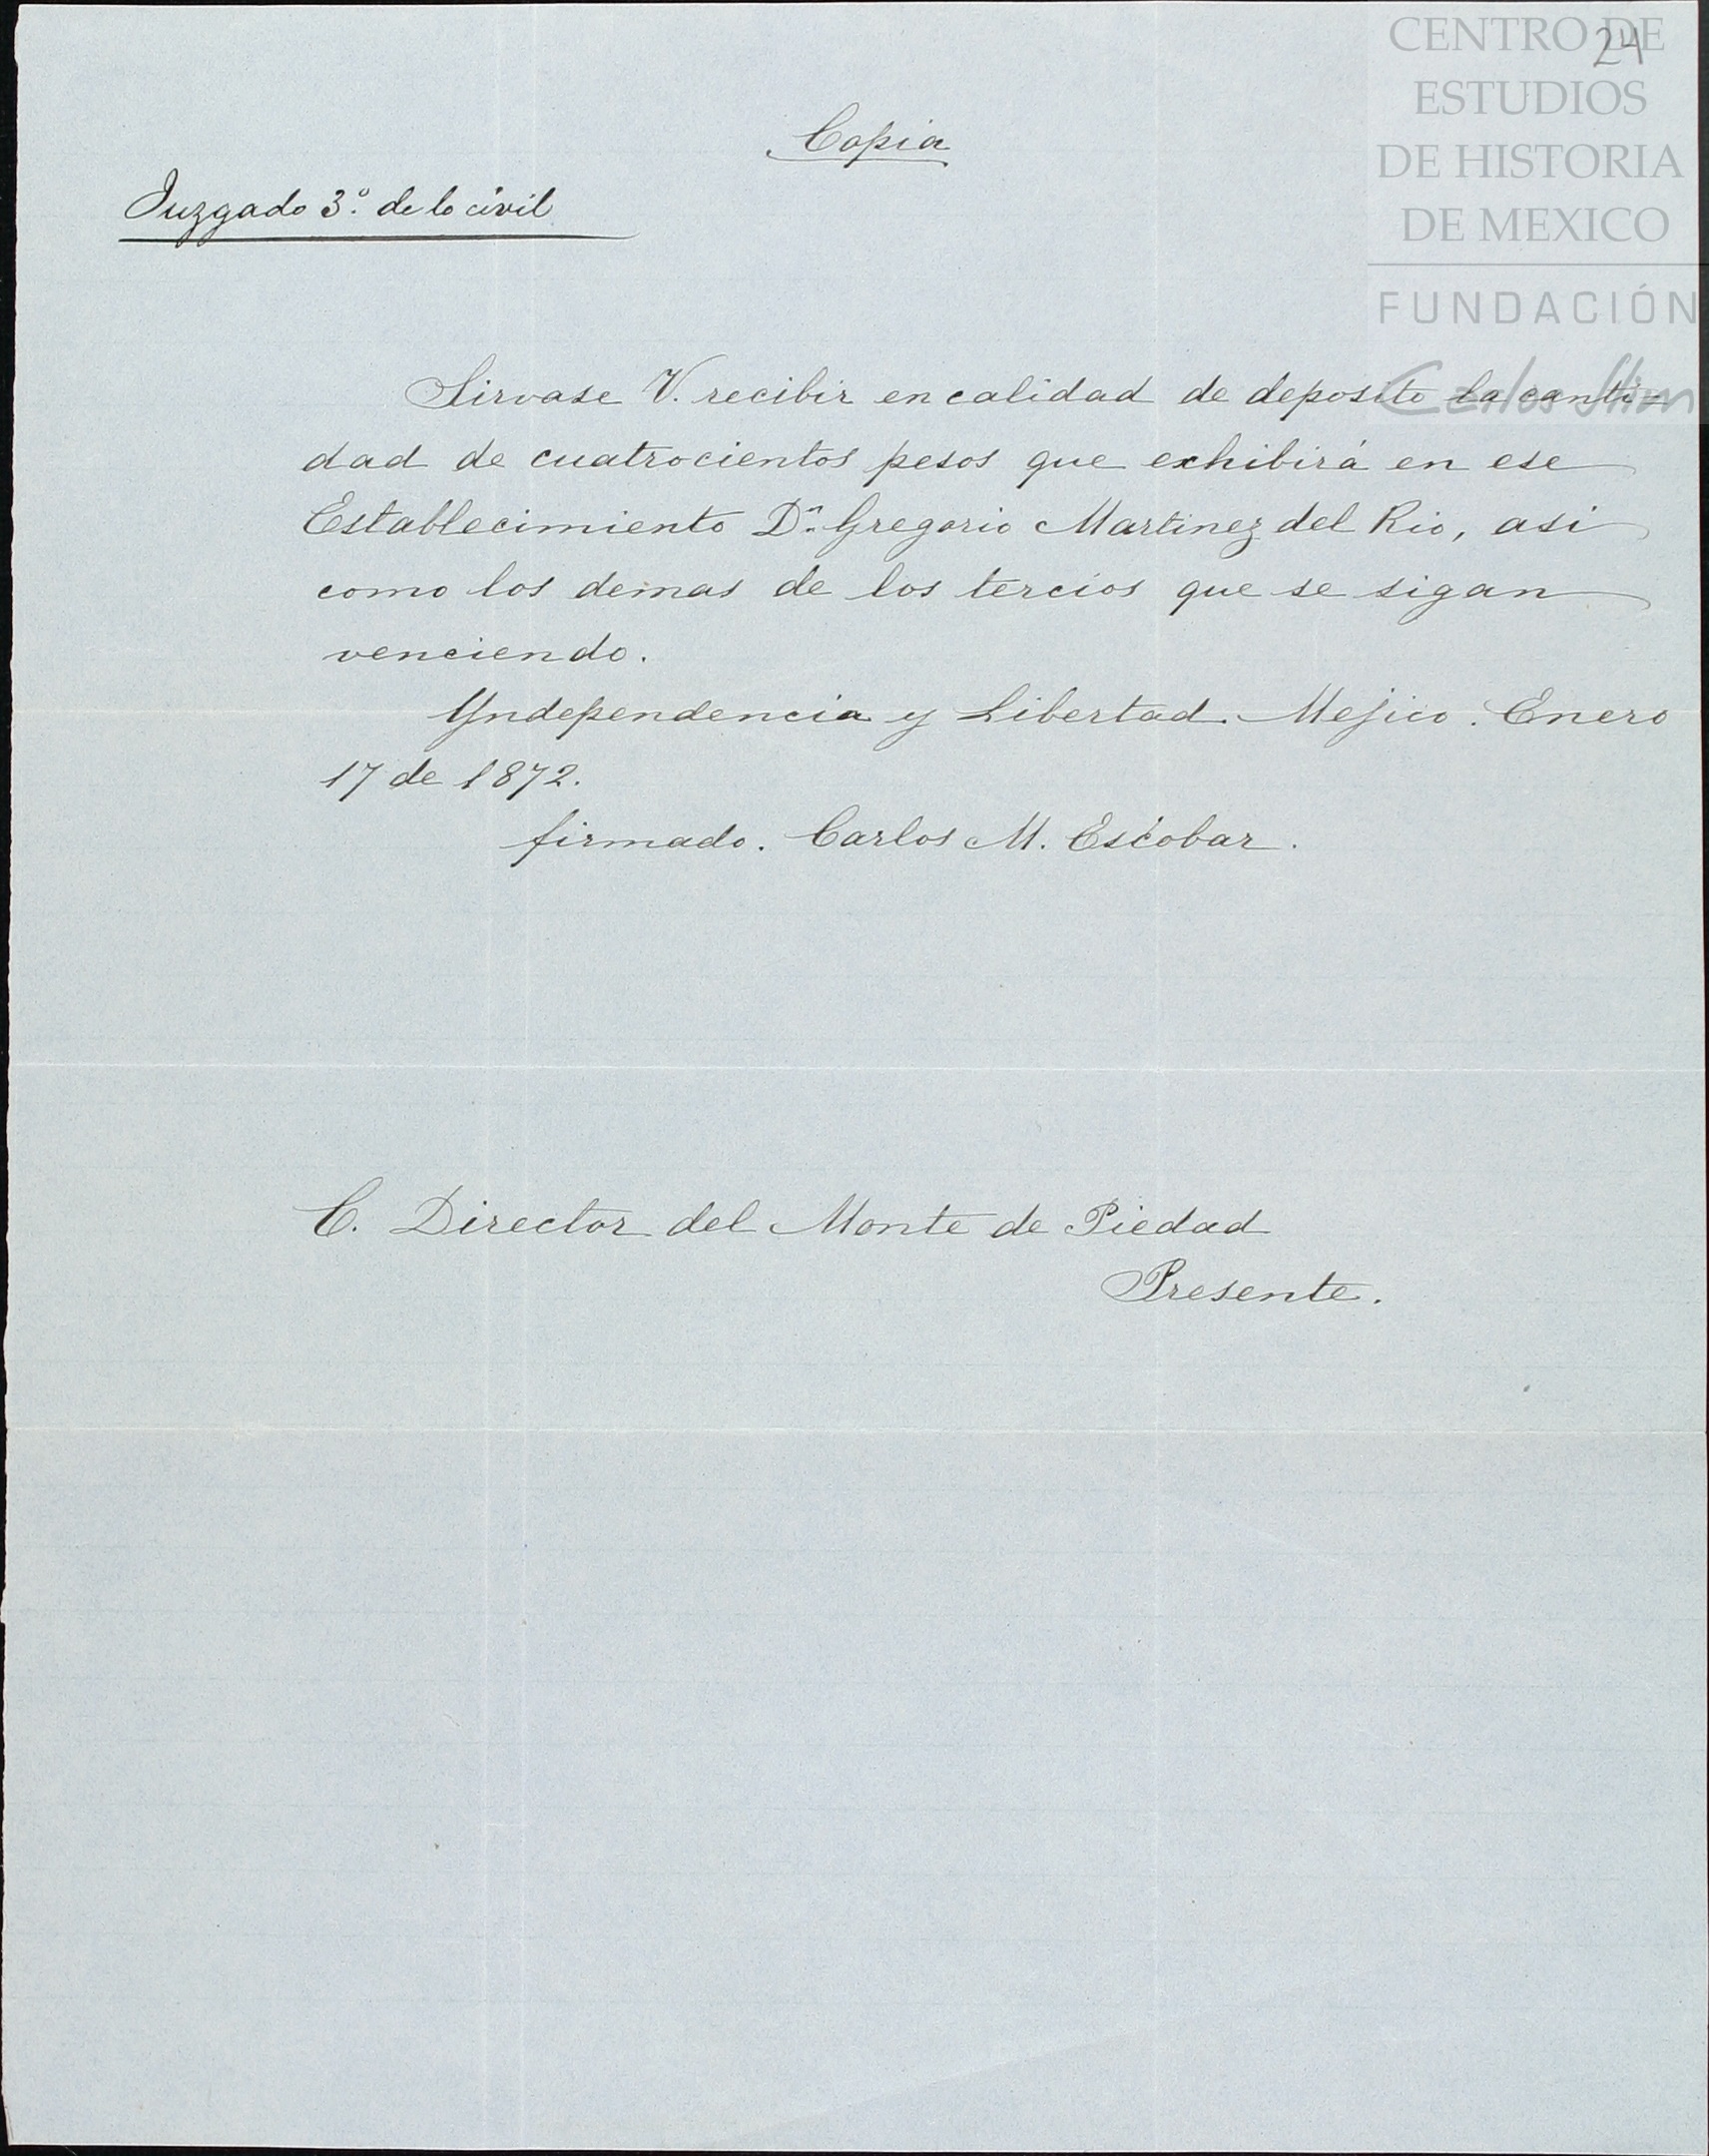 CENTRO DE
24
ESTUDIOS
DE HISTORIA
DE MEXICO
FUNDACIÓN
Carlos Slim
Copia
Juzgado 3.º de lo civil
Sirvase V. recibir en calidad de deposito la canti-
dad de cuatrocientos pesos que exhibirá en ese
Establecimiento Dn. Gregorio Martinez del Rio, asi
como los demas de los tercios que se sigan
venciendo.
Yndependencia y Libertad. Mejico. Enero
17 de 1872.
firmado. Carlos M. Escobar.
C. Director del Monte de Piedad
Presente.